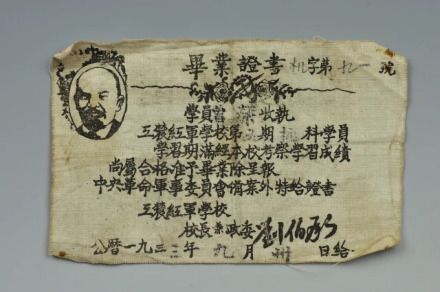 畢業證書 机字第十一號
學員曾 葉 收執
工農紅軍學校第五期机科學員
學習期滿經本校考察學習成績
尚屬合格准予畢業除呈報
中央革命軍事委員會備案外特給證書
工農紅軍學校
校長兼政委劉伯承
公曆一九三三年九月 日給